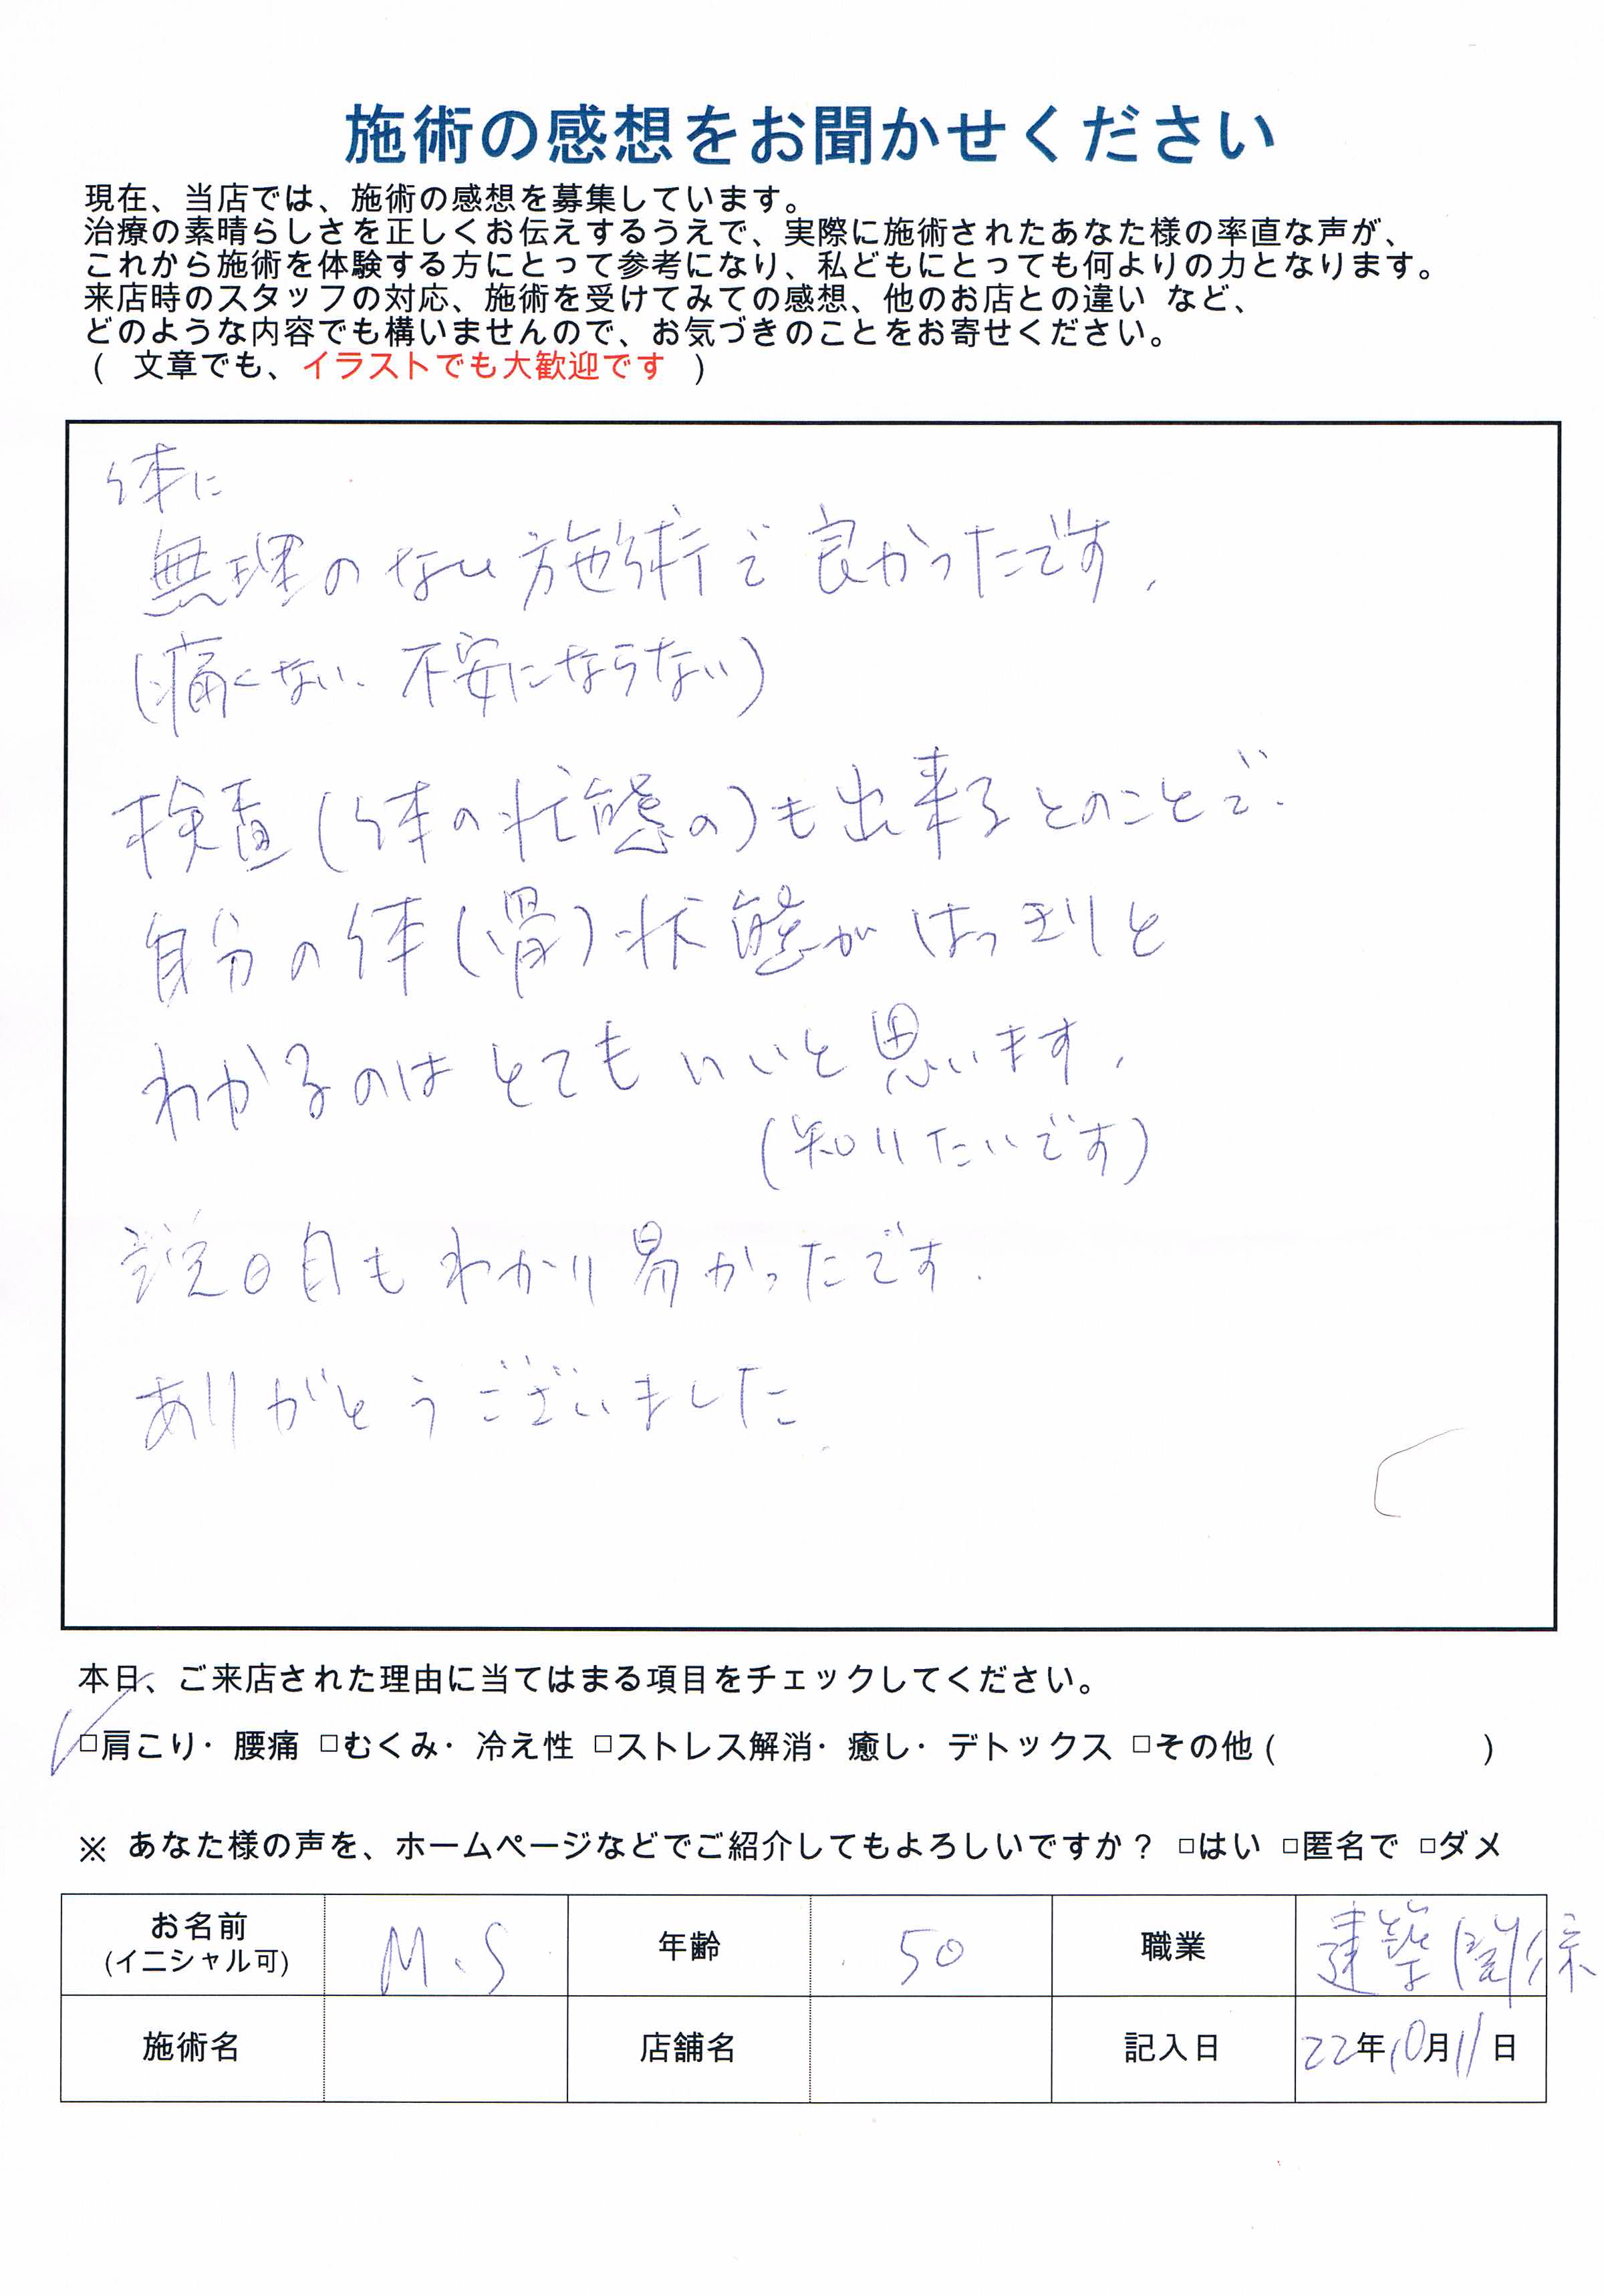 施術の感想をお聞かせください
現在、当店では、施術の感想を募集しています。
治療の素晴らしさを正しくお伝えするうえで、実際に施術されたあなた様の率直な声が、
これから施術を体験する方にとって参考になり、私どもにとっても何よりの力となります。
来店時のスタッフの対応、施術を受けてみての感想、他のお店との違い など、
どのような内容でも構いませんので、お気づきのことをお寄せください。
( 文章でも、イラストでも大歓迎です )
体に
無理のない施術で良かったです。
(痛くない、不安にならない)
検査(体の状態の)も出来るとのことで、
自分の体(骨)状態がはっきりと
わかるのはとてもいいと思います。
(知りたいです)
説明もわかり易かったです。
ありがとうございました
本日、ご来店された理由に当てはまる項目をチェックしてください。
☑肩こり・腰痛 □むくみ・冷え性 □ストレス解消・癒し・デトックス □その他 ( )
※ あなた様の声を、ホームページなどでご紹介してもよろしいですか? □はい □匿名で □ダメ
お名前 (イニシャル可) M.S 年齢 50 職業 建築関係
施術名 店舗名 記入日 22年10月11日